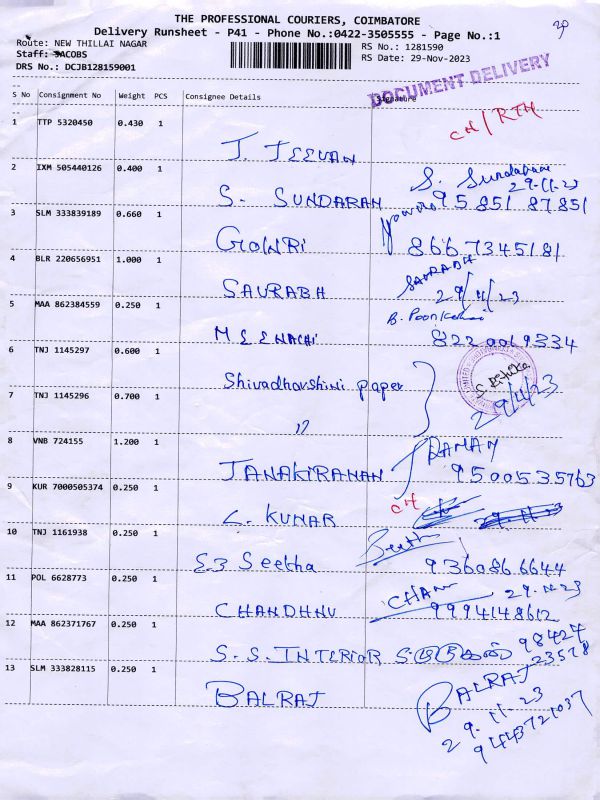 THE PROFESSIONAL COURIERS, COIMBATORE
Delivery Runsheet - P41 - Phone No.:0422-3505555 - Page No.:1
Route: NEW THILLAI NAGAR
RS No.: 1281590
Staff: JACOBS
RS Date: 29-Nov-2023
DRS No.: DCJB128159001
DOCUMENT DELIVERY
S No Consignment No Weight PCS Consignee Details Signature
1 TTP 5320450 0.430 1
CH/RTH
J. JEEVAN
2 IXM 505440126 0.400 1
S. Sundaram
29-11-23
S. SUNDARAM 95851 87851
3 SLM 333839189 0.660 1
GOWRI 8667345181
4 BLR 220656951 1.000 1
SAURABH
SAURABH 29/11/23
5 MAA 862384559 0.250 1
B.
MEENACHI 8220069334
6 TNJ 1145297 0.600 1
Shivadharshini paper
29/11/23
7 TNJ 1145296 0.700 1
"
8 VNB 724155 1.200 1
RAMAN
JANAKIRAMAN 9500535763
9 KUR 7000505374 0.250 1
CH
KUMAR
10 TNJ 1161938 0.250 1
Seetha 9360866644
11 POL 6628773 0.250 1
29-11-23
CHANDHNU 9994148612
12 MAA 862371767 0.250 1
S.S. INTERIOR 98424
23578
13 SLM 333828115 0.250 1
BALRAJ BALRAJ
29.11.23
9443721037